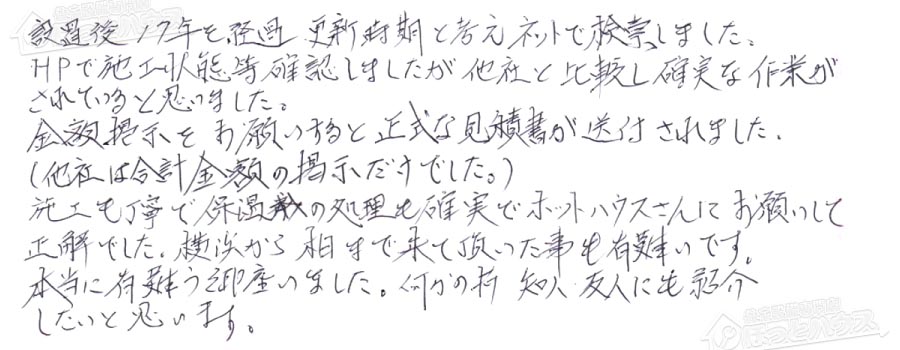 設置後17年を経過 更新時期と考えネットで検索しました。
HPで施工状態等確認しましたが他社と比較し確実な作業が
されていると思いました。
金額掲示をお願いすると正式な見積書が送付されました。
(他社は合計金額の掲示だけでした。)
施工も丁寧で保温材の処理も確実でホットハウスさんにお願いして
正解でした。横浜から柏まで来て頂いた事も有難いです。
本当に有難う御座いました。何かの折 知人・友人にも紹介
したいと思います。
ほっとハウス